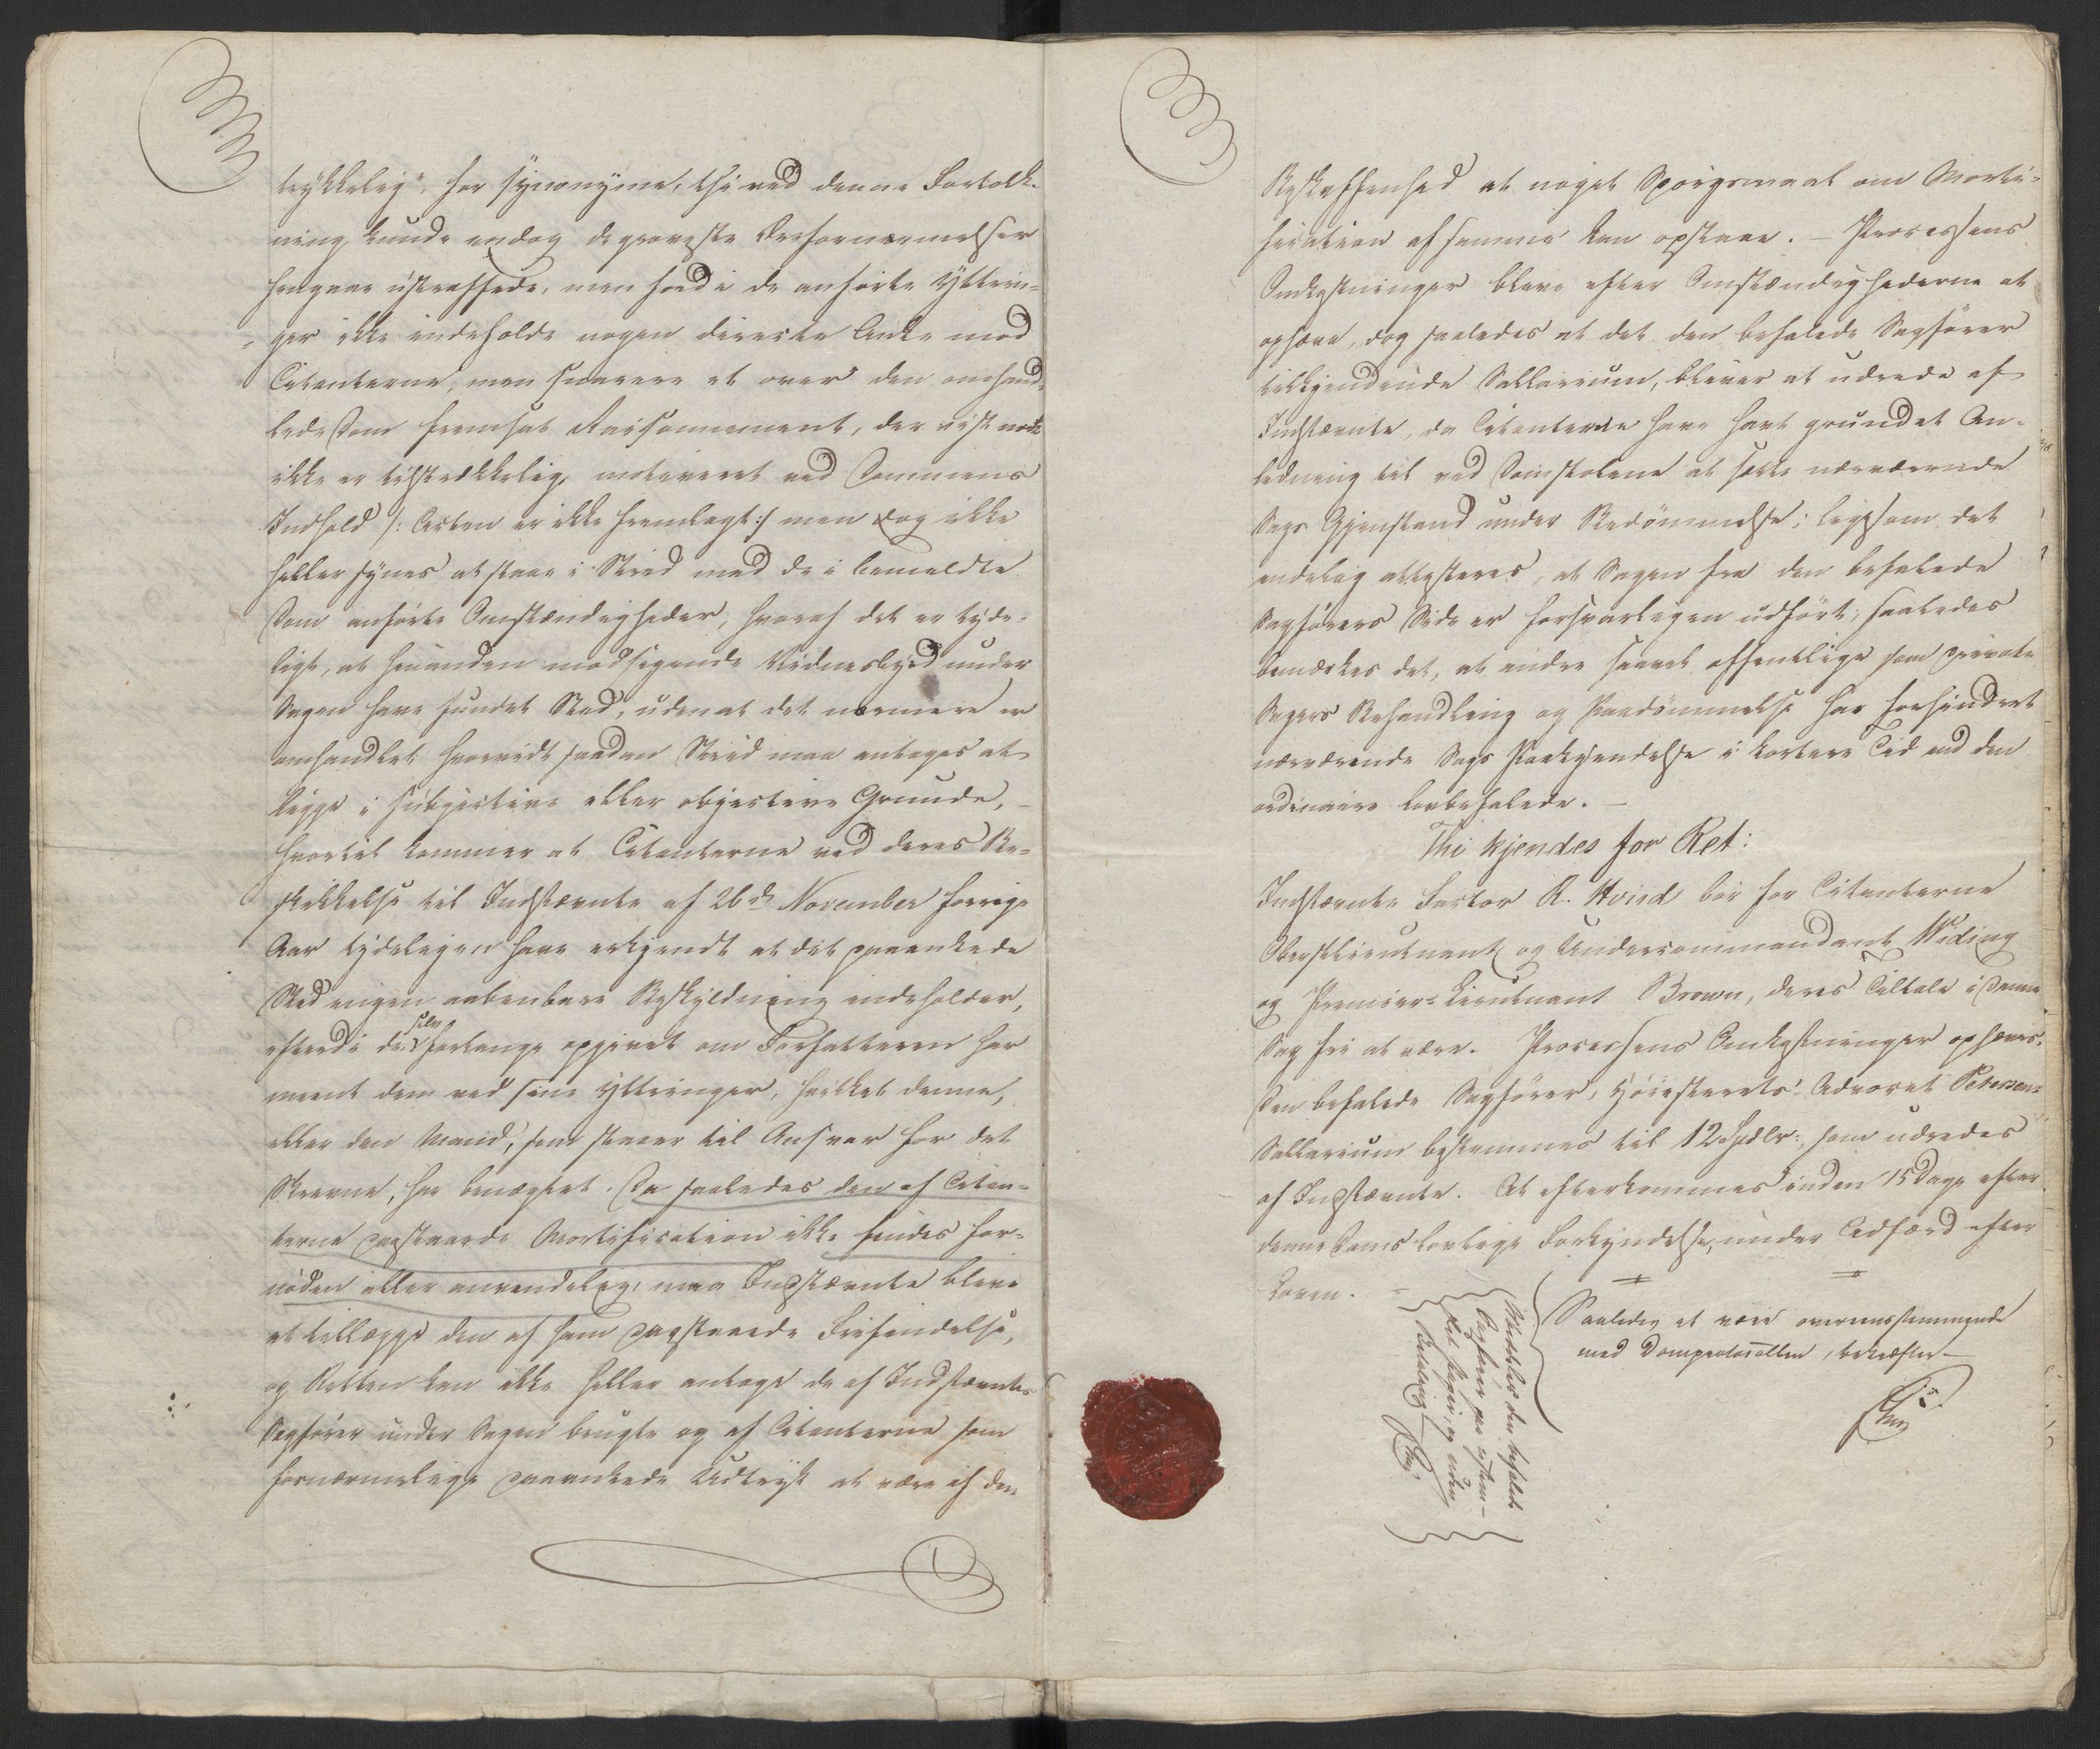 trykkelig", for synonyme, thi ved denne Fortolk-
ning kunde endog de groveste Ærefornærmelser
hengaae ustraffede, men fordi de anførte Yttrin-
ger ikke indeholde nogen directe Anke mod
Citanterne, men snarere et over den omhand-
lede Dom fremsat Raisonnement, der vist nok
ikke er tilstrækkelig motiveret ved Dommens
Indhold /: Acten er ikke fremlagt :/ men dog ikke
heller synes at staae i Strid med de i bemeldte
Dom anførte Omstændigheder, hvoraf det er tyde-
ligt, at hinanden modsigende Vidnesbyrd under
Sagen have fundet Sted, uden at det nærmere er
omhandlet hvorvidt saadan Strid maa antages at
ligge i subjective eller objective Grunde, –
hvortil kommer at Citanterne ved deres Be-
skikkelse til Indstævnte af 26de November forrige
Aar tydeligen have erkjendt at det paaankede
Sted ingen aabenbare Beskyldning indeholder,
efterdi de selv forlange opgivet om Forfatteren har
meent dem ved sine Yttringer, hvilket denne,
eller den Mand, som staaer til Ansvar for det
Skrevne, har benægtet. Da saaledes den af Citan-
terne paastaaede Mortification ikke findes for-
nøden eller anvendelig, maa Indstævnte blive
at tillægge den af ham paastaaede Frifindelse,
og Retten kan ikke heller antage de af Indstævntes
Sagfører under Sagen brugte og af Citanterne som
fornærmelige paaankede Udtryk at være af den
Beskaffenhed at noget Spørgsmaal om Morti-
fication af samme kan opstaae. – Processens
Omkostninger blive efter Omstændighederne at
ophæve, dog saaledes at det den befalede Sagfører
tilkjendende Sallarium, bliver at udrede af
Indstævnte, da Citanterne have havt grundet An-
ledning til ved Domstolene at sætte nærværende
Sags Gjenstand under Bedømmelse; ligesom det
endelig attesteres, at Sagen fra den befalede
Sagførers Side er forsvarligen udført; saaledes
bemærkes det, at andre saavel offentlige som private
Sagers Behandling og Paadømmelse har forhindret
nærværende Sags Paakjendelse i kortere Tid end den
ordinaire lovbefalede. –
Thi kjendes for Ret:
Indstævnte Factor R. Hviid bør for Citanterne
Oberstlieutnant og Undercommandant Widing
og Premier-Lieutnant Brown, deres Tiltale i denne
Sag fri at være. Processens Omkostninger ophæves.
Den befalede Sagfører, Høiesterets-Advocat Petersens
Sallarium bestemmes til 12 Spdlr:, som udredes
af Indstævnte. At efterkommes inden 15 Dage efter
denne Doms lovlige Forkyndelse, under Adfærd efter
Loven. –
Saaledes at være overeensstemmende
med Domprotocollen, bekræfter –
Meddeles den befalede
Sagfører paa ustem-
plet Papir, og uden
Betaling